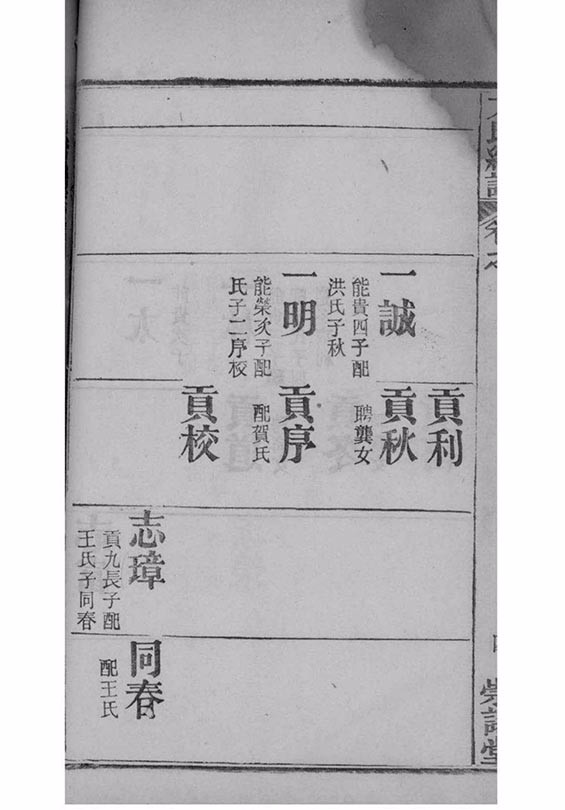 氏總譜
卷
堂
一誠
能貴四子配
洪氏子秋
一明
能榮次子配
氏子二序校
貢利
貢秋
聘龔女
貢序
配賀氏
貢校
志璋
貢九長子配
王氏子同春
同春
配王氏